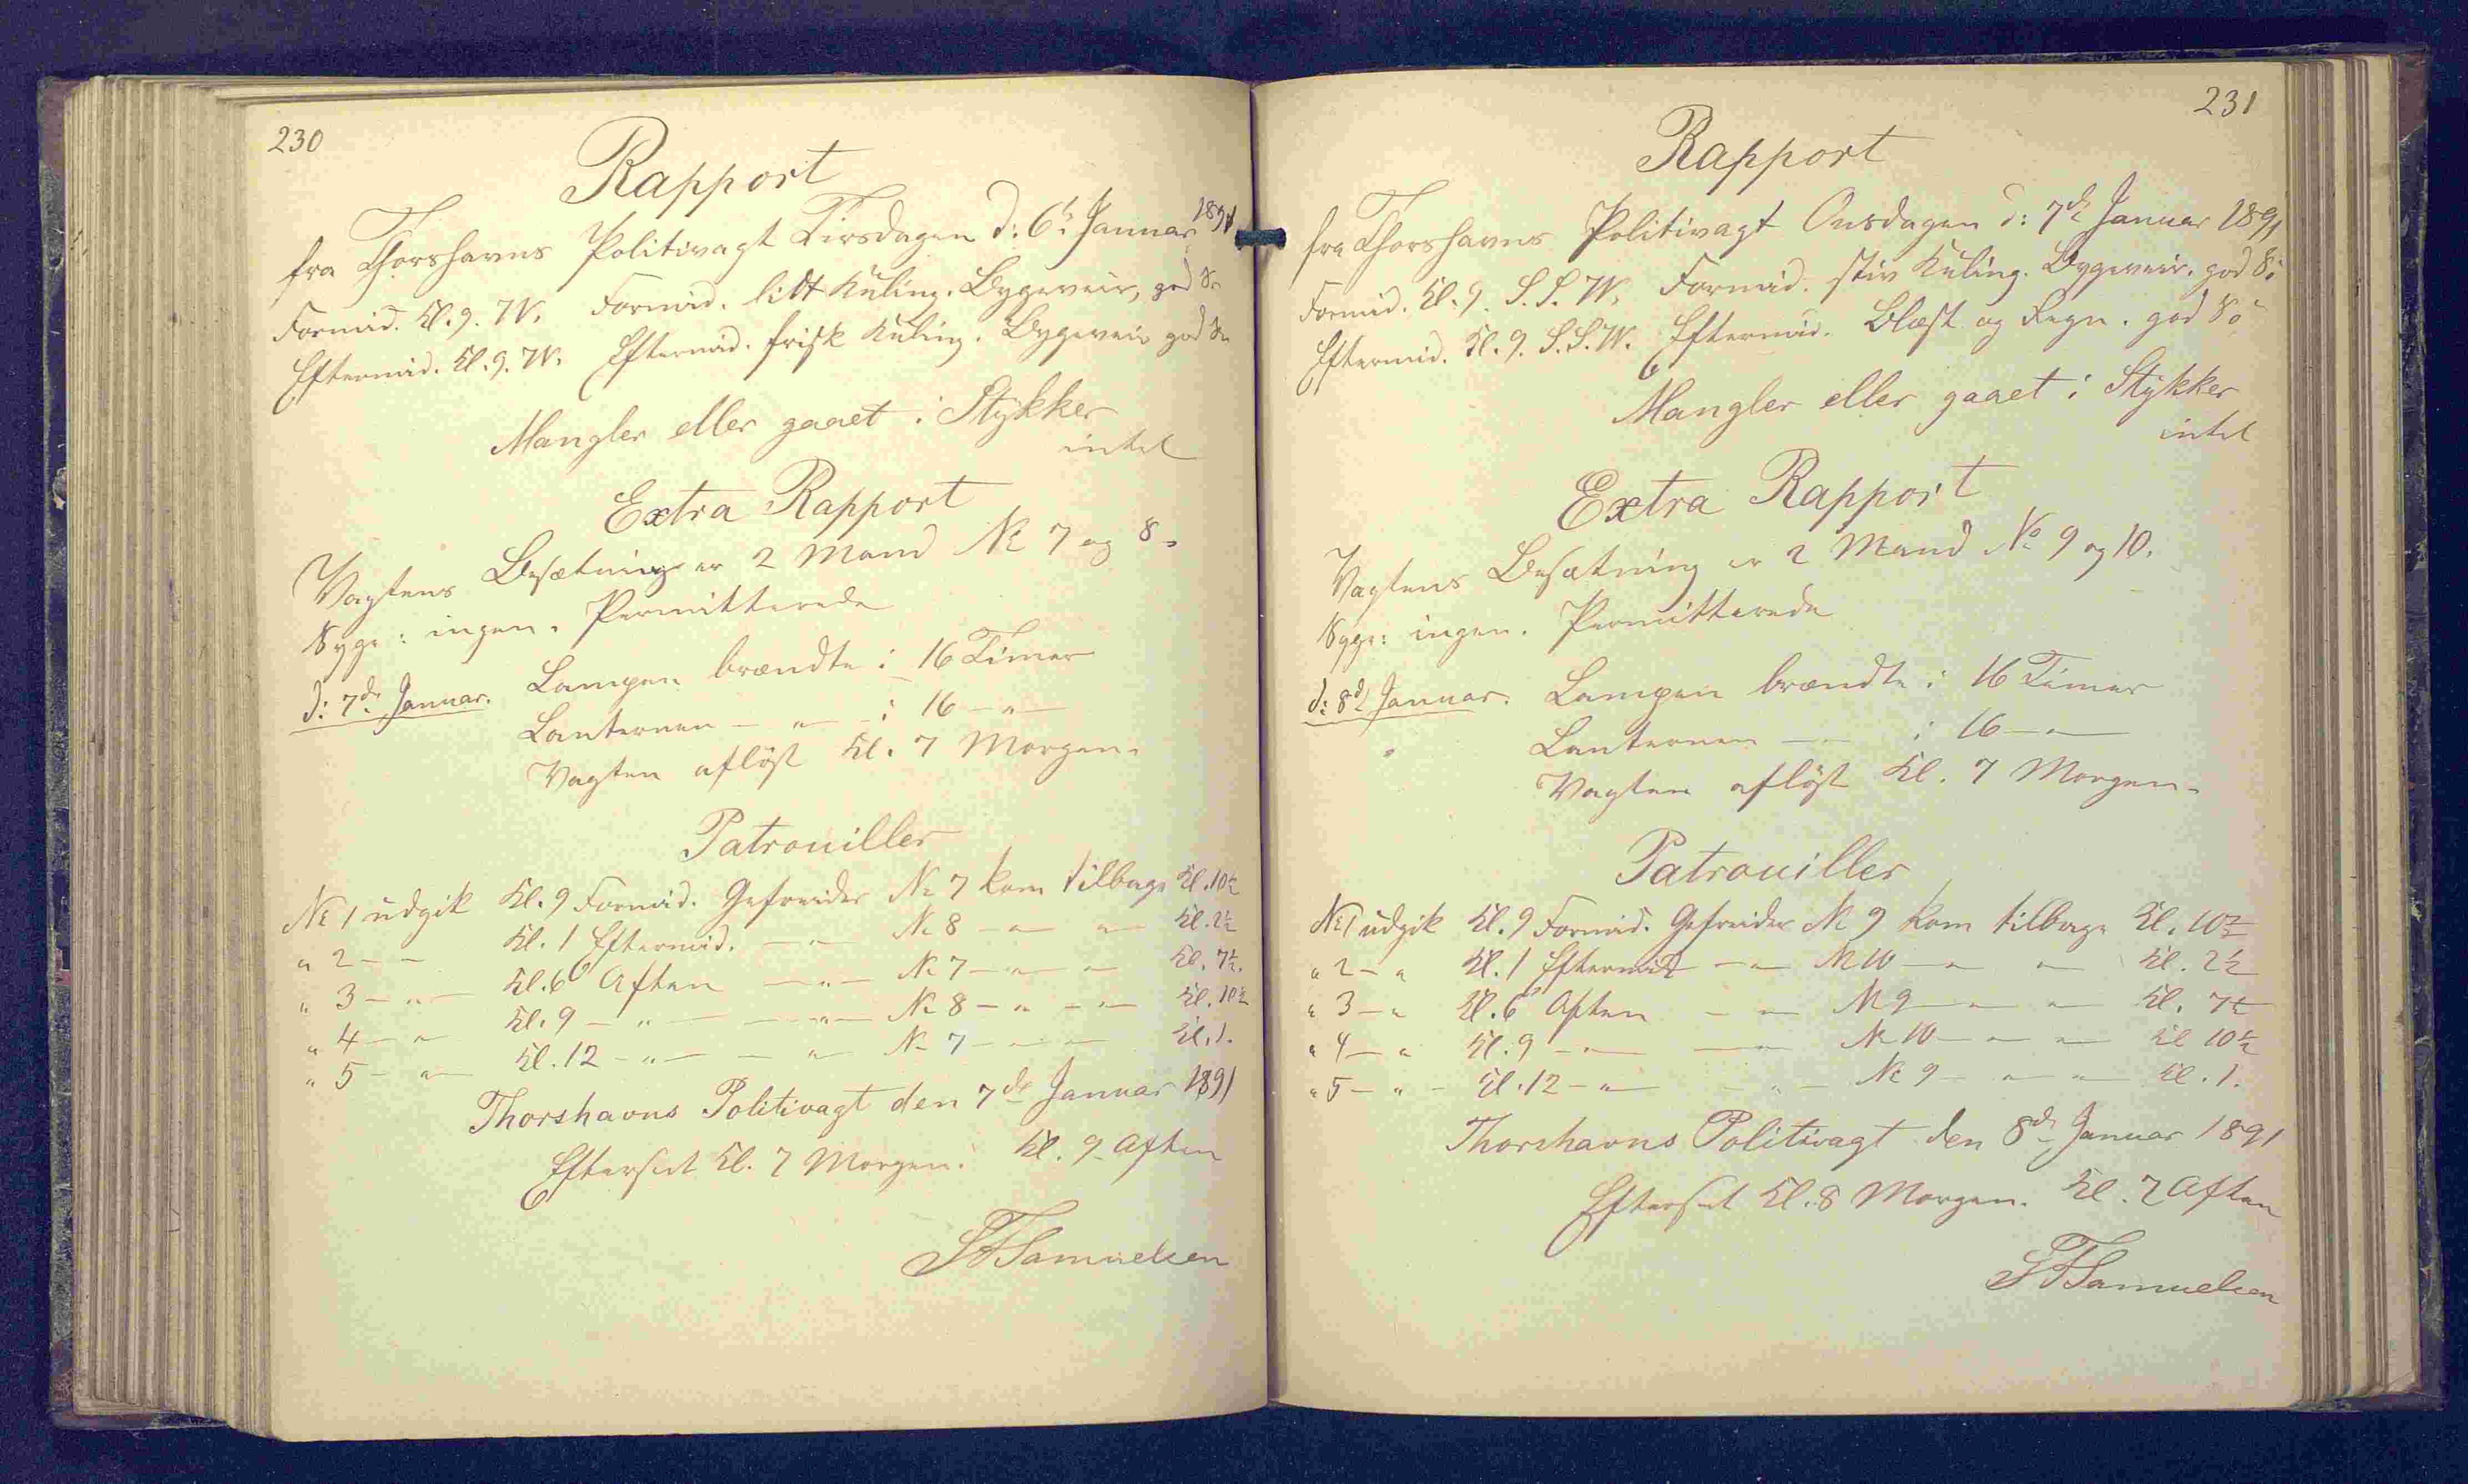 230
Rapport
fra Thorshavns Politivagt Tirsdagen d: 6te Januar 1891
Formid. Kl. 9. W. Formid. lidt Kuling. Bygeveir, god
Eftermid. Kl. 9. W. Eftermid. frisk Kuling. Bygeveir god
Mangler eller gaaet i Stykker
intet
Extra Rapport
Vagtens Besætning er 2 Mand No 7 og 8.
Syge: ingen. Permitterede
d: 7de Januar. Lampen brændte i 16 Timer
Lanternen — " — i 16 — " —
Vagten aflöst Kl. 7 Morgen.
Patrouiller
No 1 udgik Kl. 9 Formid. Gefreider No 7 kom tilbage Kl. 10½
" 2 — — Kl. 1 Eftermid. — " — No 8 — " — " — Kl. 2½
" 3 — " — Kl. 6 Aften — " — No 7 — " — " — Kl. 7½.
" 4 — " — Kl. 9 — " — — " — No 8 — " — " — Kl. 10½
" 5 — " — Kl. 12 — " — — " — No 7 — " — " — Kl. 1.
Thorshavns Politivagt den 7de Januar 1891
Efterset Kl. 7 Morgen. Kl. 9 Aften
Samuelsen
231
Rapport
fra Thorshavns Politivagt Onsdagen d: 7de Januar 1891
Formid. Kl. 9. S.S.W. Formid. stiv Kuling. Bygeveir. god
Eftermid. Kl. 9. S.S.W. Eftermid. Blæst og Regn. god
Mangler eller gaaet i Stykker
intet
Extra Rapport
Vagtens Besætning er 2 Mand No 9 og 10.
Syge: ingen. Permitterede
d: 8de Januar. Lampen brændte i 16 Timer
Lanternen — — i 16 — " —
Vagten aflöst Kl. 7 Morgen.
Patrouiller
No 1 udgik Kl. 9 Formid. Gefreider No 9 kom tilbage Kl. 10½
" 2 — " Kl. 1 Eftermid — " — No 10 — " — " — Kl. 2½
" 3 — " Kl. 6 Aften — " — No 9 — " — " — Kl. 7½
" 4 — " Kl. 9 — " — — " — No 10 — " — " — Kl 10½
" 5 — " — Kl. 12 — " — — " — No 9 — " — " — Kl. 1.
Thorshavns Politivagt den 8de Januar 1891
Efterset Kl. 8 Morgen. Kl. 7 Aften
Samuelsen